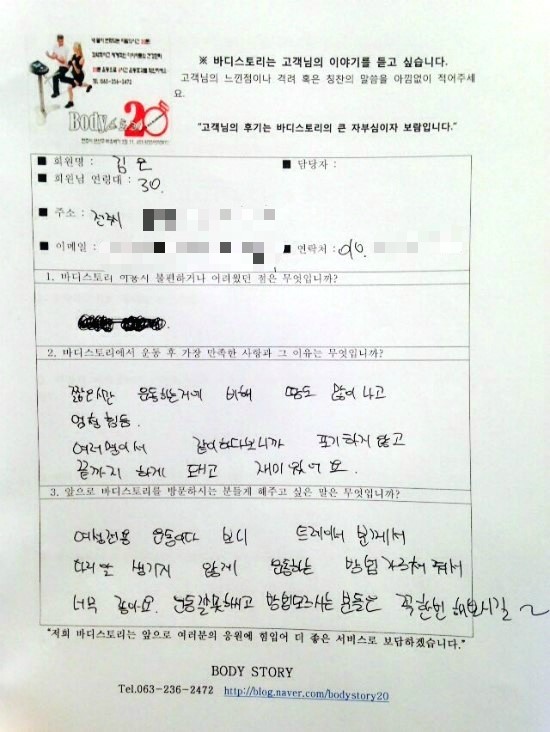 ※ 바디스토리는 고객님의 이야기를 듣고 싶습니다.
고객님의 느낀점이나 격려 혹은 칭찬의 말씀을 아낌없이 적어주세
요.
Body 20
"고객님의 후기는 바디스토리의 큰 자부심이자 보람입니다."
■ 회원명 : 김 ■ 담당자 :
■ 회원님 연령대 : 30.
■ 주소 : 전주시
■ 이메일 : ■ 연락처 : 010.
1. 바디스토리 이용시 불편하거나 어려웠던 점은 무엇입니까?
2. 바디스토리에서 운동 후 가장 만족한 사항과 그 이유는 무엇입니까?
짧은시간 운동하는거에 비해 땀도 많이 나고
엄청 힘듬.
여러명이서 같이하다보니까 포기하지 않고
끝까지 하게 돼고 재미있어요.
3. 앞으로 바디스토리를 방문하시는 분들게 해주고 싶은 말은 무엇입니까?
여성전용 운동이다 보니 트레이너 분께서
생기지 않게 운동하는 방법 가르쳐 줘서
너무 좋아요. 운동잘못하고 방법모르시는 분들은 꼭한번 해보시길~
"저희 바디스토리는 앞으로 여러분의 응원에 힘입어 더 좋은 서비스로 보답하겠습니다."
BODY STORY
Tel.063-236-2472 http://blog.naver.com/bodystory20